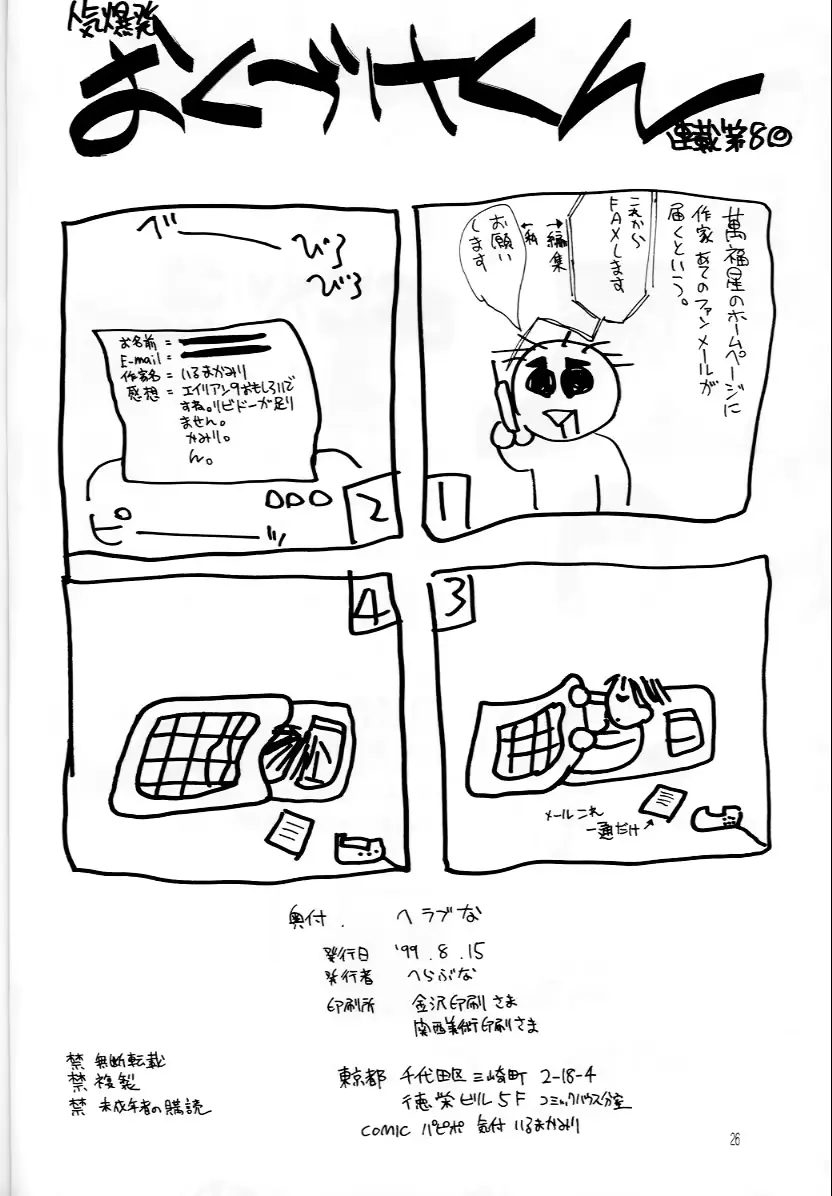 人気爆発
おくづけくん
連載第8回
萬福星のホームページに
作家あてのファンメールが
届くという。
これから
FAXします
→編集
←私
お願い
します
1
ガー
びろ
びろ
お名前 =
E-mail =
作家名 = いるまかみり
感想 = エイリアン9おもしろいで
すね。リビドーが足り
ません。
かみり。
ん。
ピーッ
2
3
メールこれ
一通だけ
4
奥付. へラブな
発行日 '99.8.15
発行者 へらぶな
印刷所 金沢印刷さま
関西美術印刷さま
禁 無断転載
禁 複製
禁 未成年者の購読
東京都 千代田区三崎町 2-18-4
徳栄ビル5F コミックハウス分室
COMIC パピポ 気付 いるまかみり
26